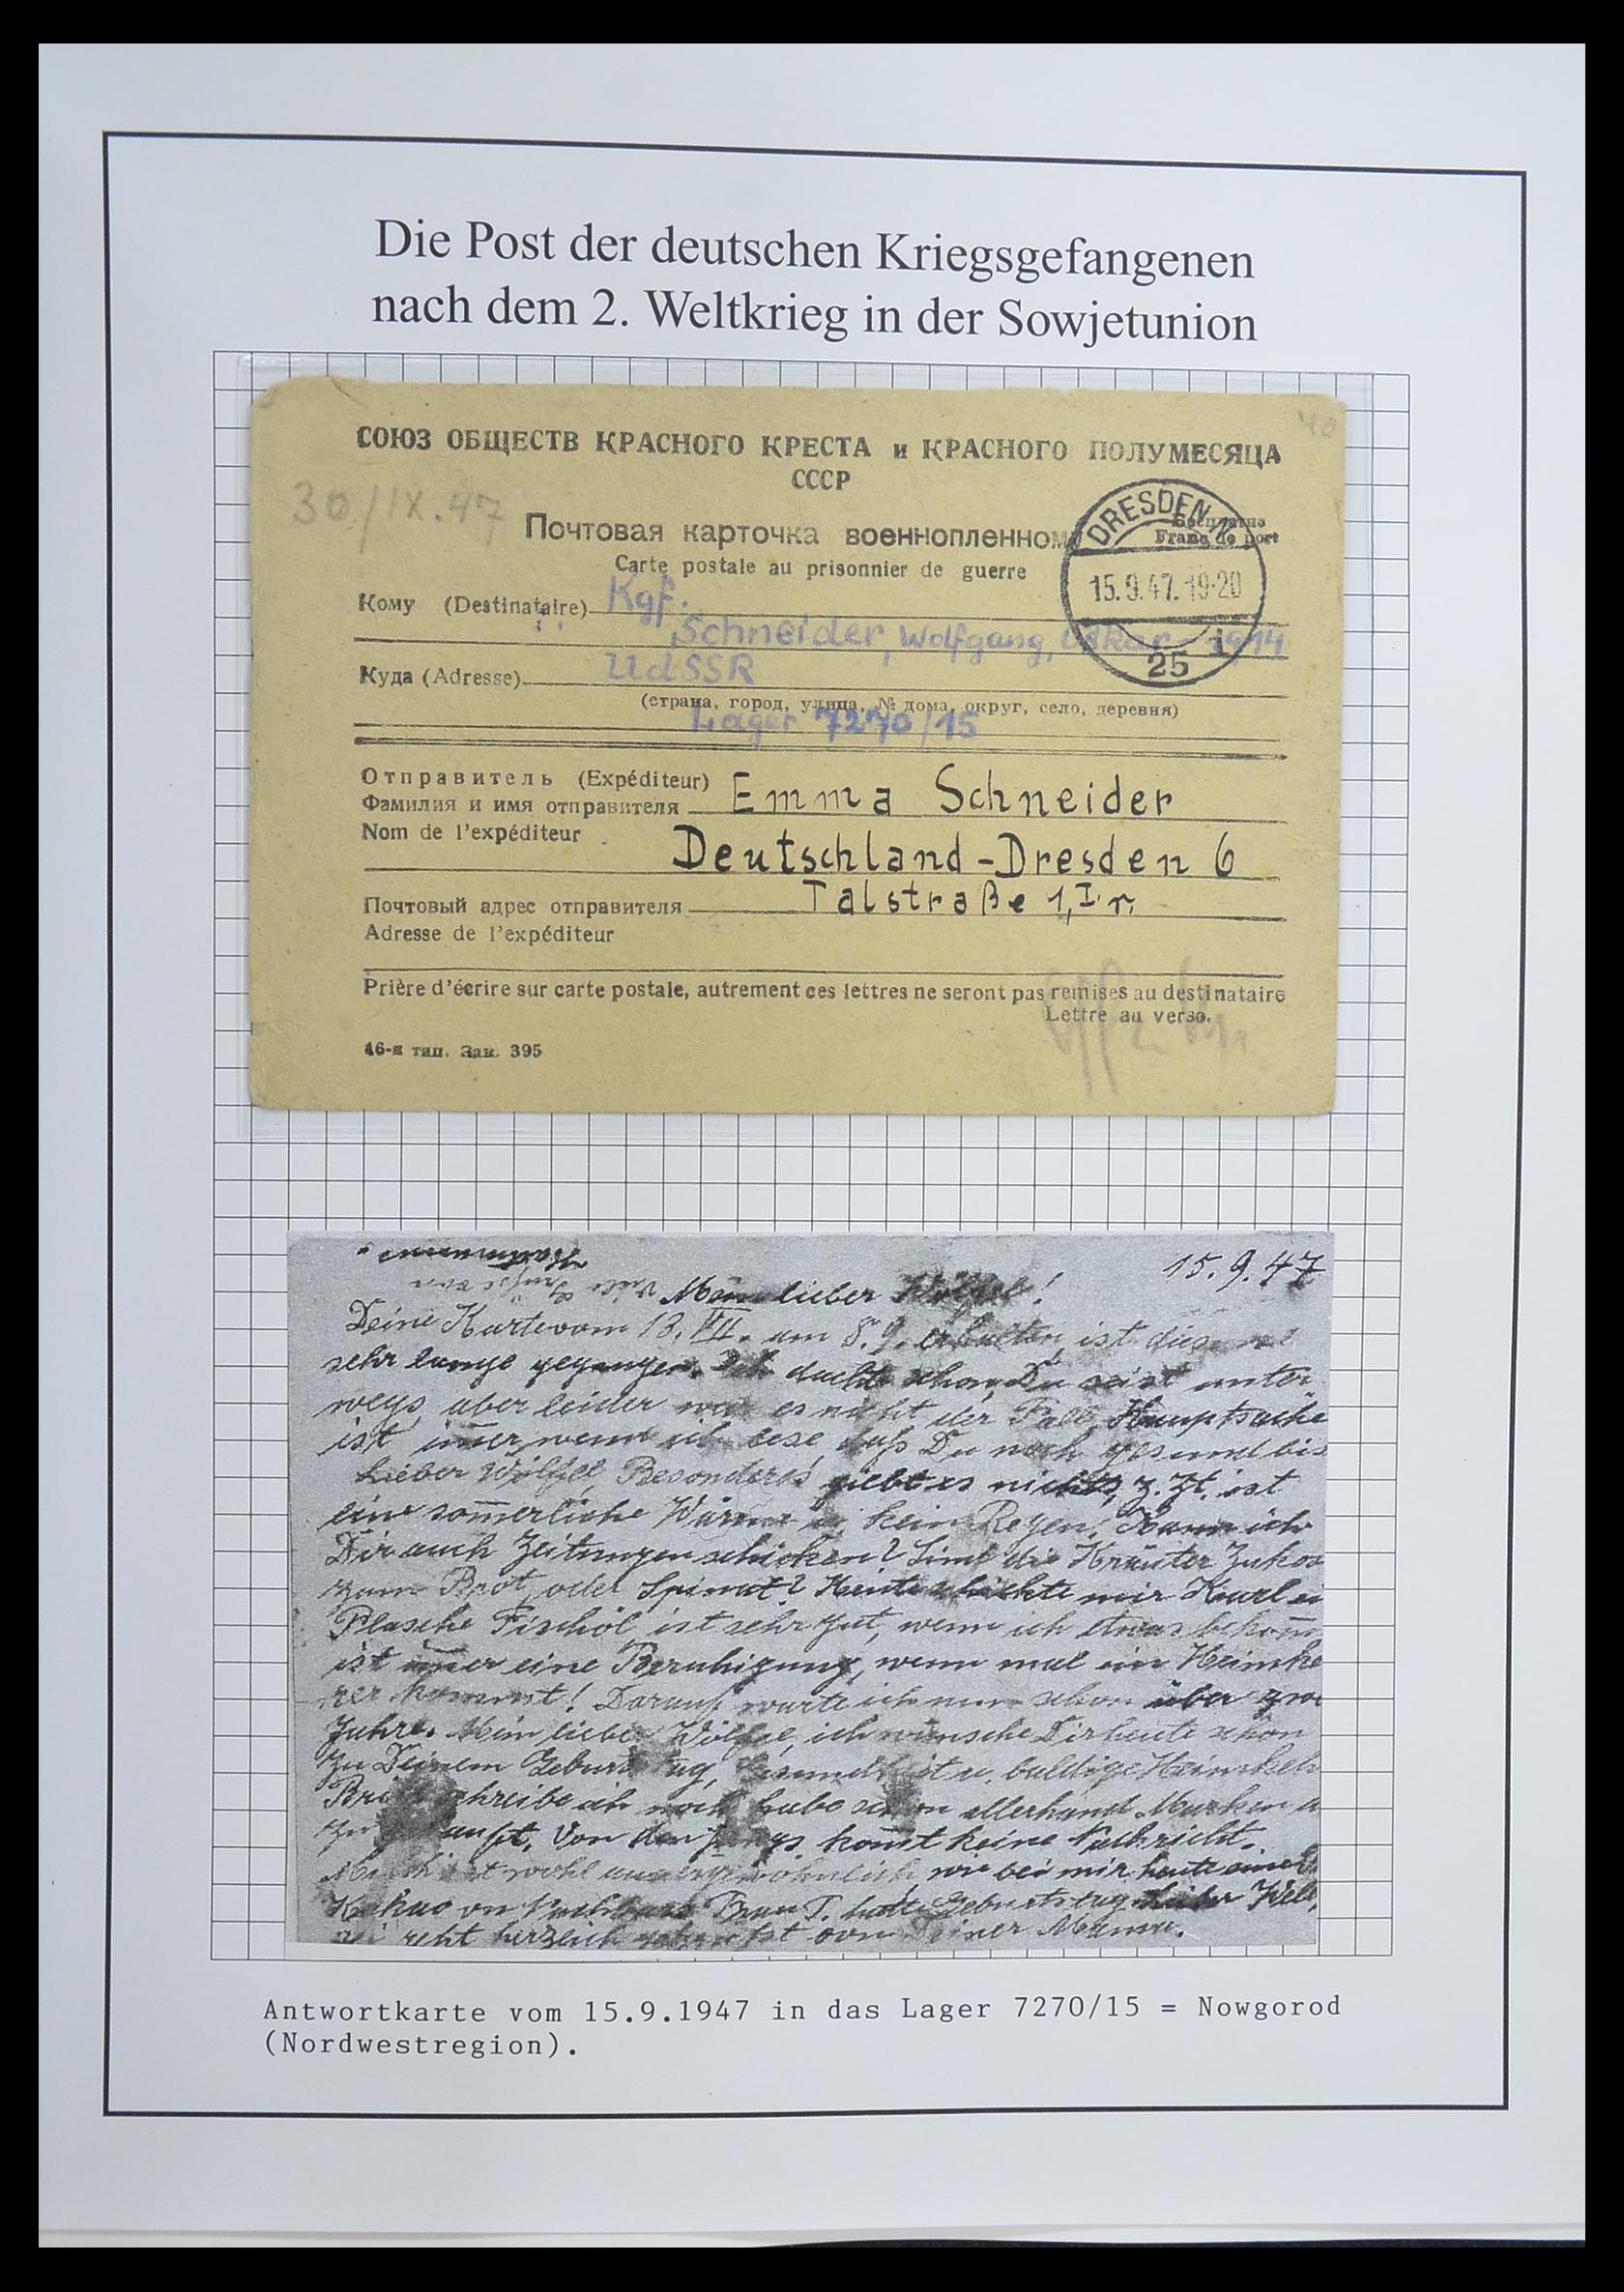 Die Post der deutschen Kriegsgefangenen
nach dem 2. Weltkrieg in der Sowjetunion
СОЮЗ ОБЩЕСТВ КРАСНОГО КРЕСТА и КРАСНОГО ПОЛУМЕСЯЦА
СССР
30/IX.47
Почтовая карточка военнопленному
Бесплатно
Franc de port
DRESDEN N
15.9.47.19-20
25
Carte postale au prisonnier de guerre
Кому (Destinataire) Kgf.
Schneider, Wolfgang, Oskar - 1914
Куда (Adresse) UdSSR
(страна, город, улица, № дома, округ, село, деревня)
Lager 7270/15
Отправитель (Expéditeur)
Фамилия и имя отправителя Emma Schneider
Nom de l'expéditeur
Deutschland-Dresden 6
Почтовый адрес отправителя Talstraße 1, I. r.
Adresse de l'expéditeur
Prière d'écrire sur carte postale, autrement ces lettres ne seront pas remises au destinataire
Lettre au verso.
16-я тип. Зак. 395
15.9.47
Viele Grüsse von
Mein lieber !
Deine Karte vom 13. VII. am 8.9. erhalten, ist
sehr lange gegangen. Ich dachte schon, Du seist unter
wegs, aber leider war es nicht der Fall, Hauptsache
ist im̅er, wenn ich lese daß Du noch gesund bis
Lieber Wölfel, Besonderes giebt es nichts, z. Zt. ist
eine som̅erliche Wärme u. kein Regen. Kann ich
Dir auch Zeitungen schicken? Sind die Kräuter Zukos
zum Brot, oder Spinat? Heute schickte mir Karl ei
Flasche Fischöl ist sehr gut, wenn ich etwas bekom̅
ist im̅er eine Beruhigung, wenn mal ein Heimke
rer kommt! Darauf warte ich nun schon über zwei
Jahre. Mein lieber Wölfel, ich wünsche Dir heute schon
zu Deinem Geburtstag, Gesundheit u. baldige Heimkeh
schreibe ich noch habe schon allerhand Marken
Von den kom̅t keine Nachricht.
wohl aussergewöhnlich, wie bei mir heute
Frau T. hatte Geburtstag
recht herzlich von Deiner Mama.
Antwortkarte vom 15.9.1947 in das Lager 7270/15 = Nowgorod
(Nordwestregion).